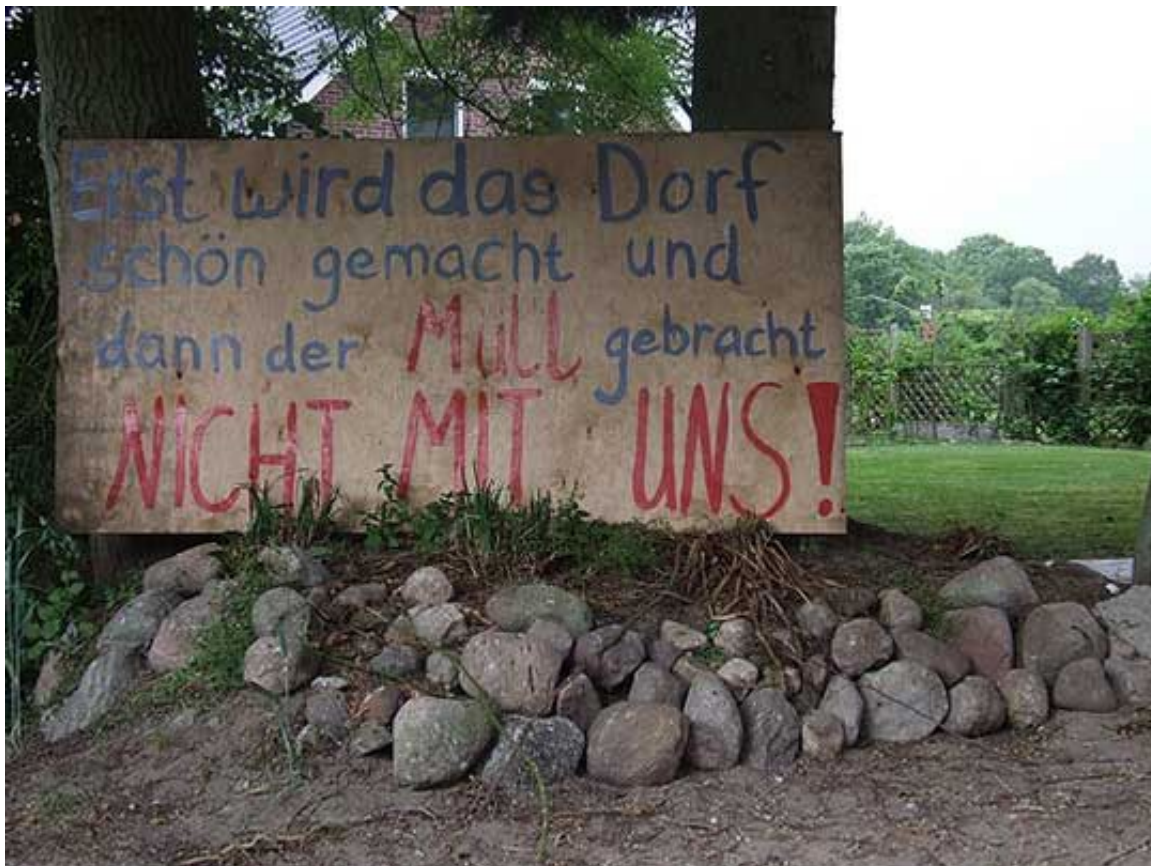 Erst wird das Dorf
schön gemacht und
dann der Müll gebracht
NICHT MIT UNS!